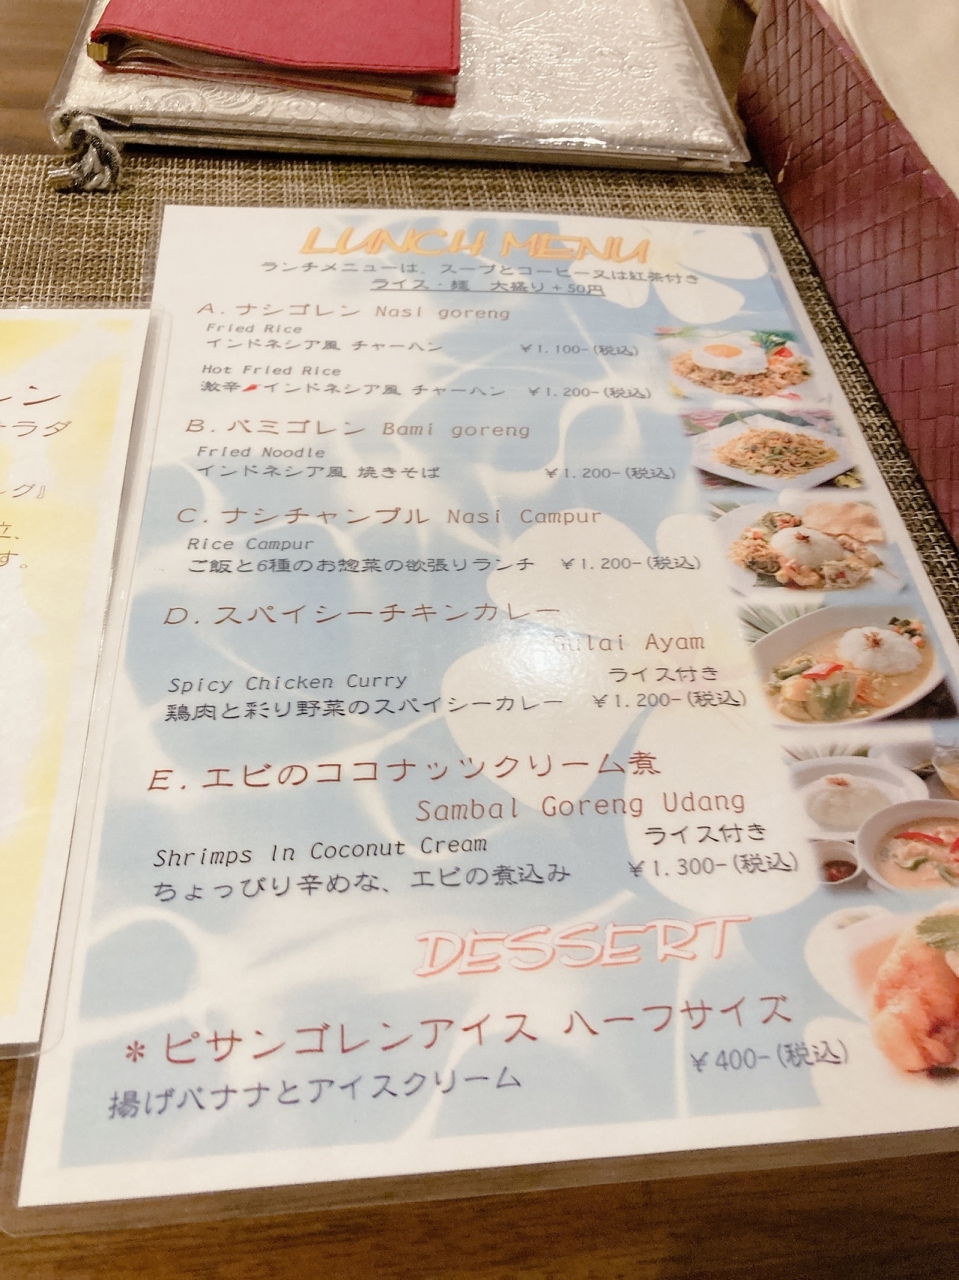 LUNCH MENU
ランチメニューは、スープとコーヒー又は紅茶付き
ライス・麺 大盛り+50円
A.ナシゴレン Nasi goreng
Fried Rice
インドネシア風 チャーハン ¥1.100-(税込)
Hot Fried Rice
激辛🌶インドネシア風 チャーハン ¥1.200-(税込)
B.バミゴレン Bami goreng
Fried Noodle
インドネシア風 焼きそば ¥1.200-(税込)
C.ナシチャンプル Nasi Campur
Rice Campur
ご飯と6種のお惣菜の欲張りランチ ¥1.200-(税込)
D.スパイシーチキンカレー
Gulai Ayam
ライス付き
Spicy Chicken Curry
鶏肉と彩り野菜のスパイシーカレー ¥1.200-(税込)
E.エビのココナッツクリーム煮
Sambal Goreng Udang
ライス付き
Shrimps In Coconut Cream
ちょっぴり辛めな、エビの煮込み ¥1.300-(税込)
DESSERT
*ピサンゴレンアイス ハーフサイズ
¥400-(税込)
揚げバナナとアイスクリーム